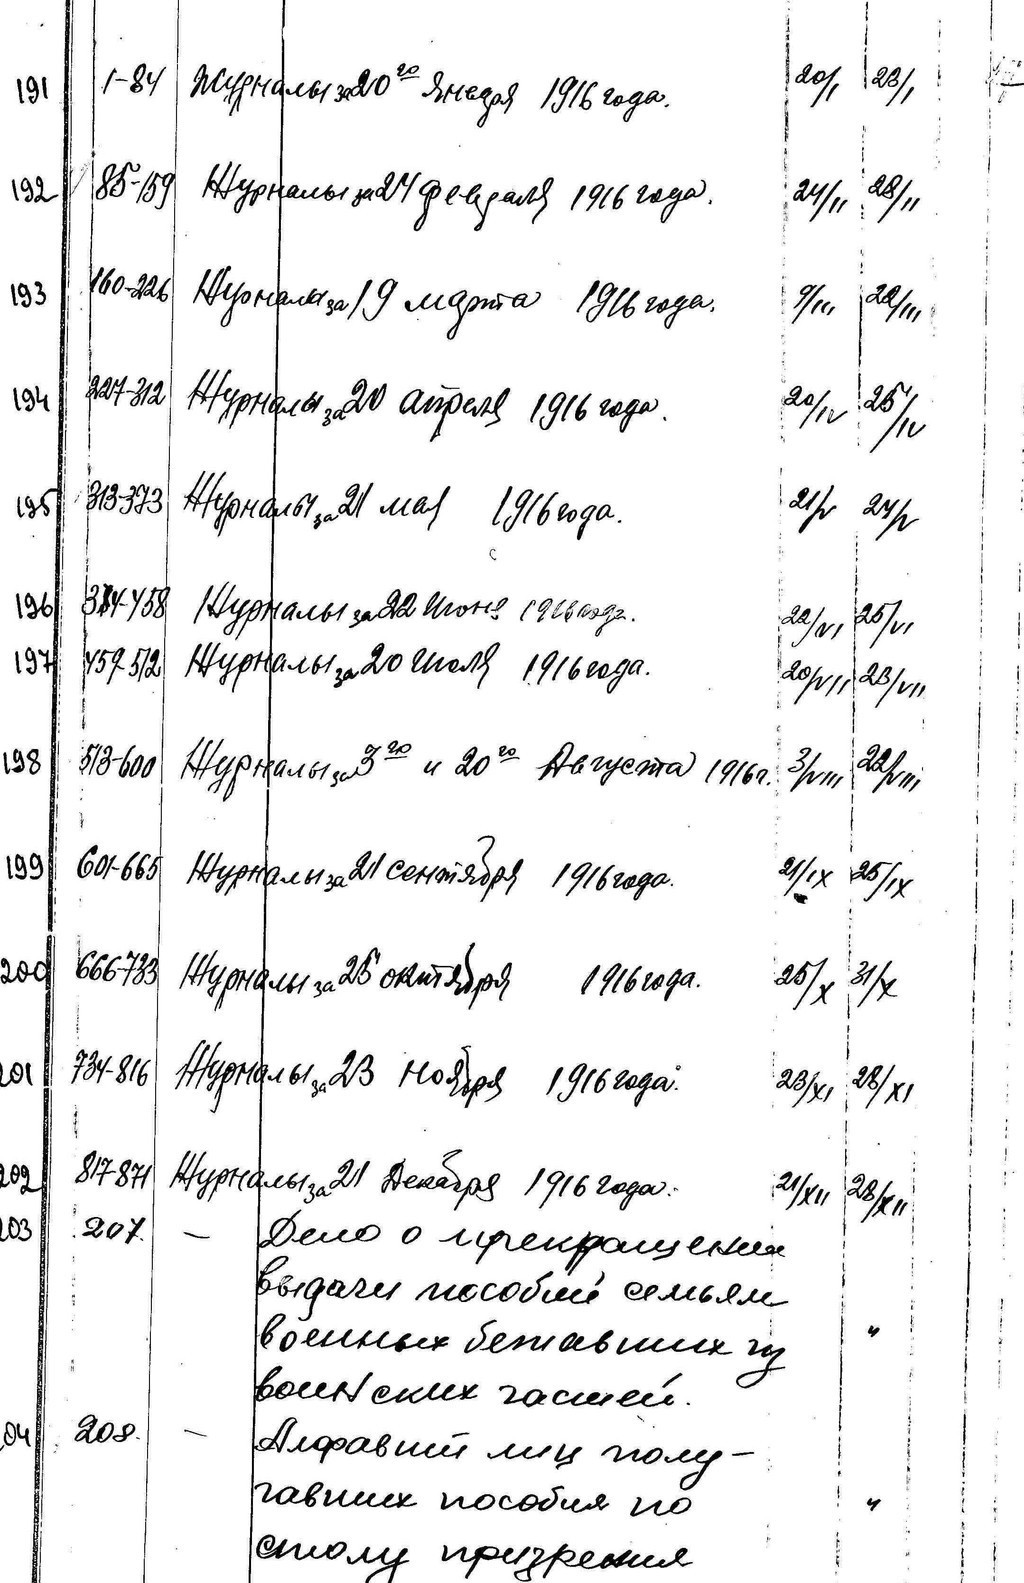 191 1-84 Журналы за 20го Января 1916 года. 20/I 23/I
192 85-159 Журналы за 24 февраля 1916 года. 24/II 28/II
193 160-226 Журналы за 19 марта 1916 года. 9/III 22/III
194 227-312 Журналы за 20 апреля 1916 года. 20/IV 25/IV
195 313-373 Журналы за 21 мая 1916 года. 21/V 24/V
196 374-458 Журналы за 22 Июня 1916 года. 22/VI 25/VI
197 459-512 Журналы за 20 Июля 1916 года. 20/VII 23/VII
198 513-600 Журналы за 3го и 20го Августа 1916 г. 3/VIII 22/VIII
199 601-665 Журналы за 21 сентября 1916 года. 21/IX 25/IX
200 666-733 Журналы за 25 октября 1916 года. 25/X 31/X
201 734-816 Журналы за 23 ноября 1916 года. 23/XI 28/XI
202 817-871 Журналы за 21 Декабря 1916 года. 21/XII 28/XII
203 207. — Дело о прекращении
выдачи пособий семьям
военных бежавших из "
воинских частей.
04 208. — Алфавит лиц полу-
чавших пособия по "
столу призрения